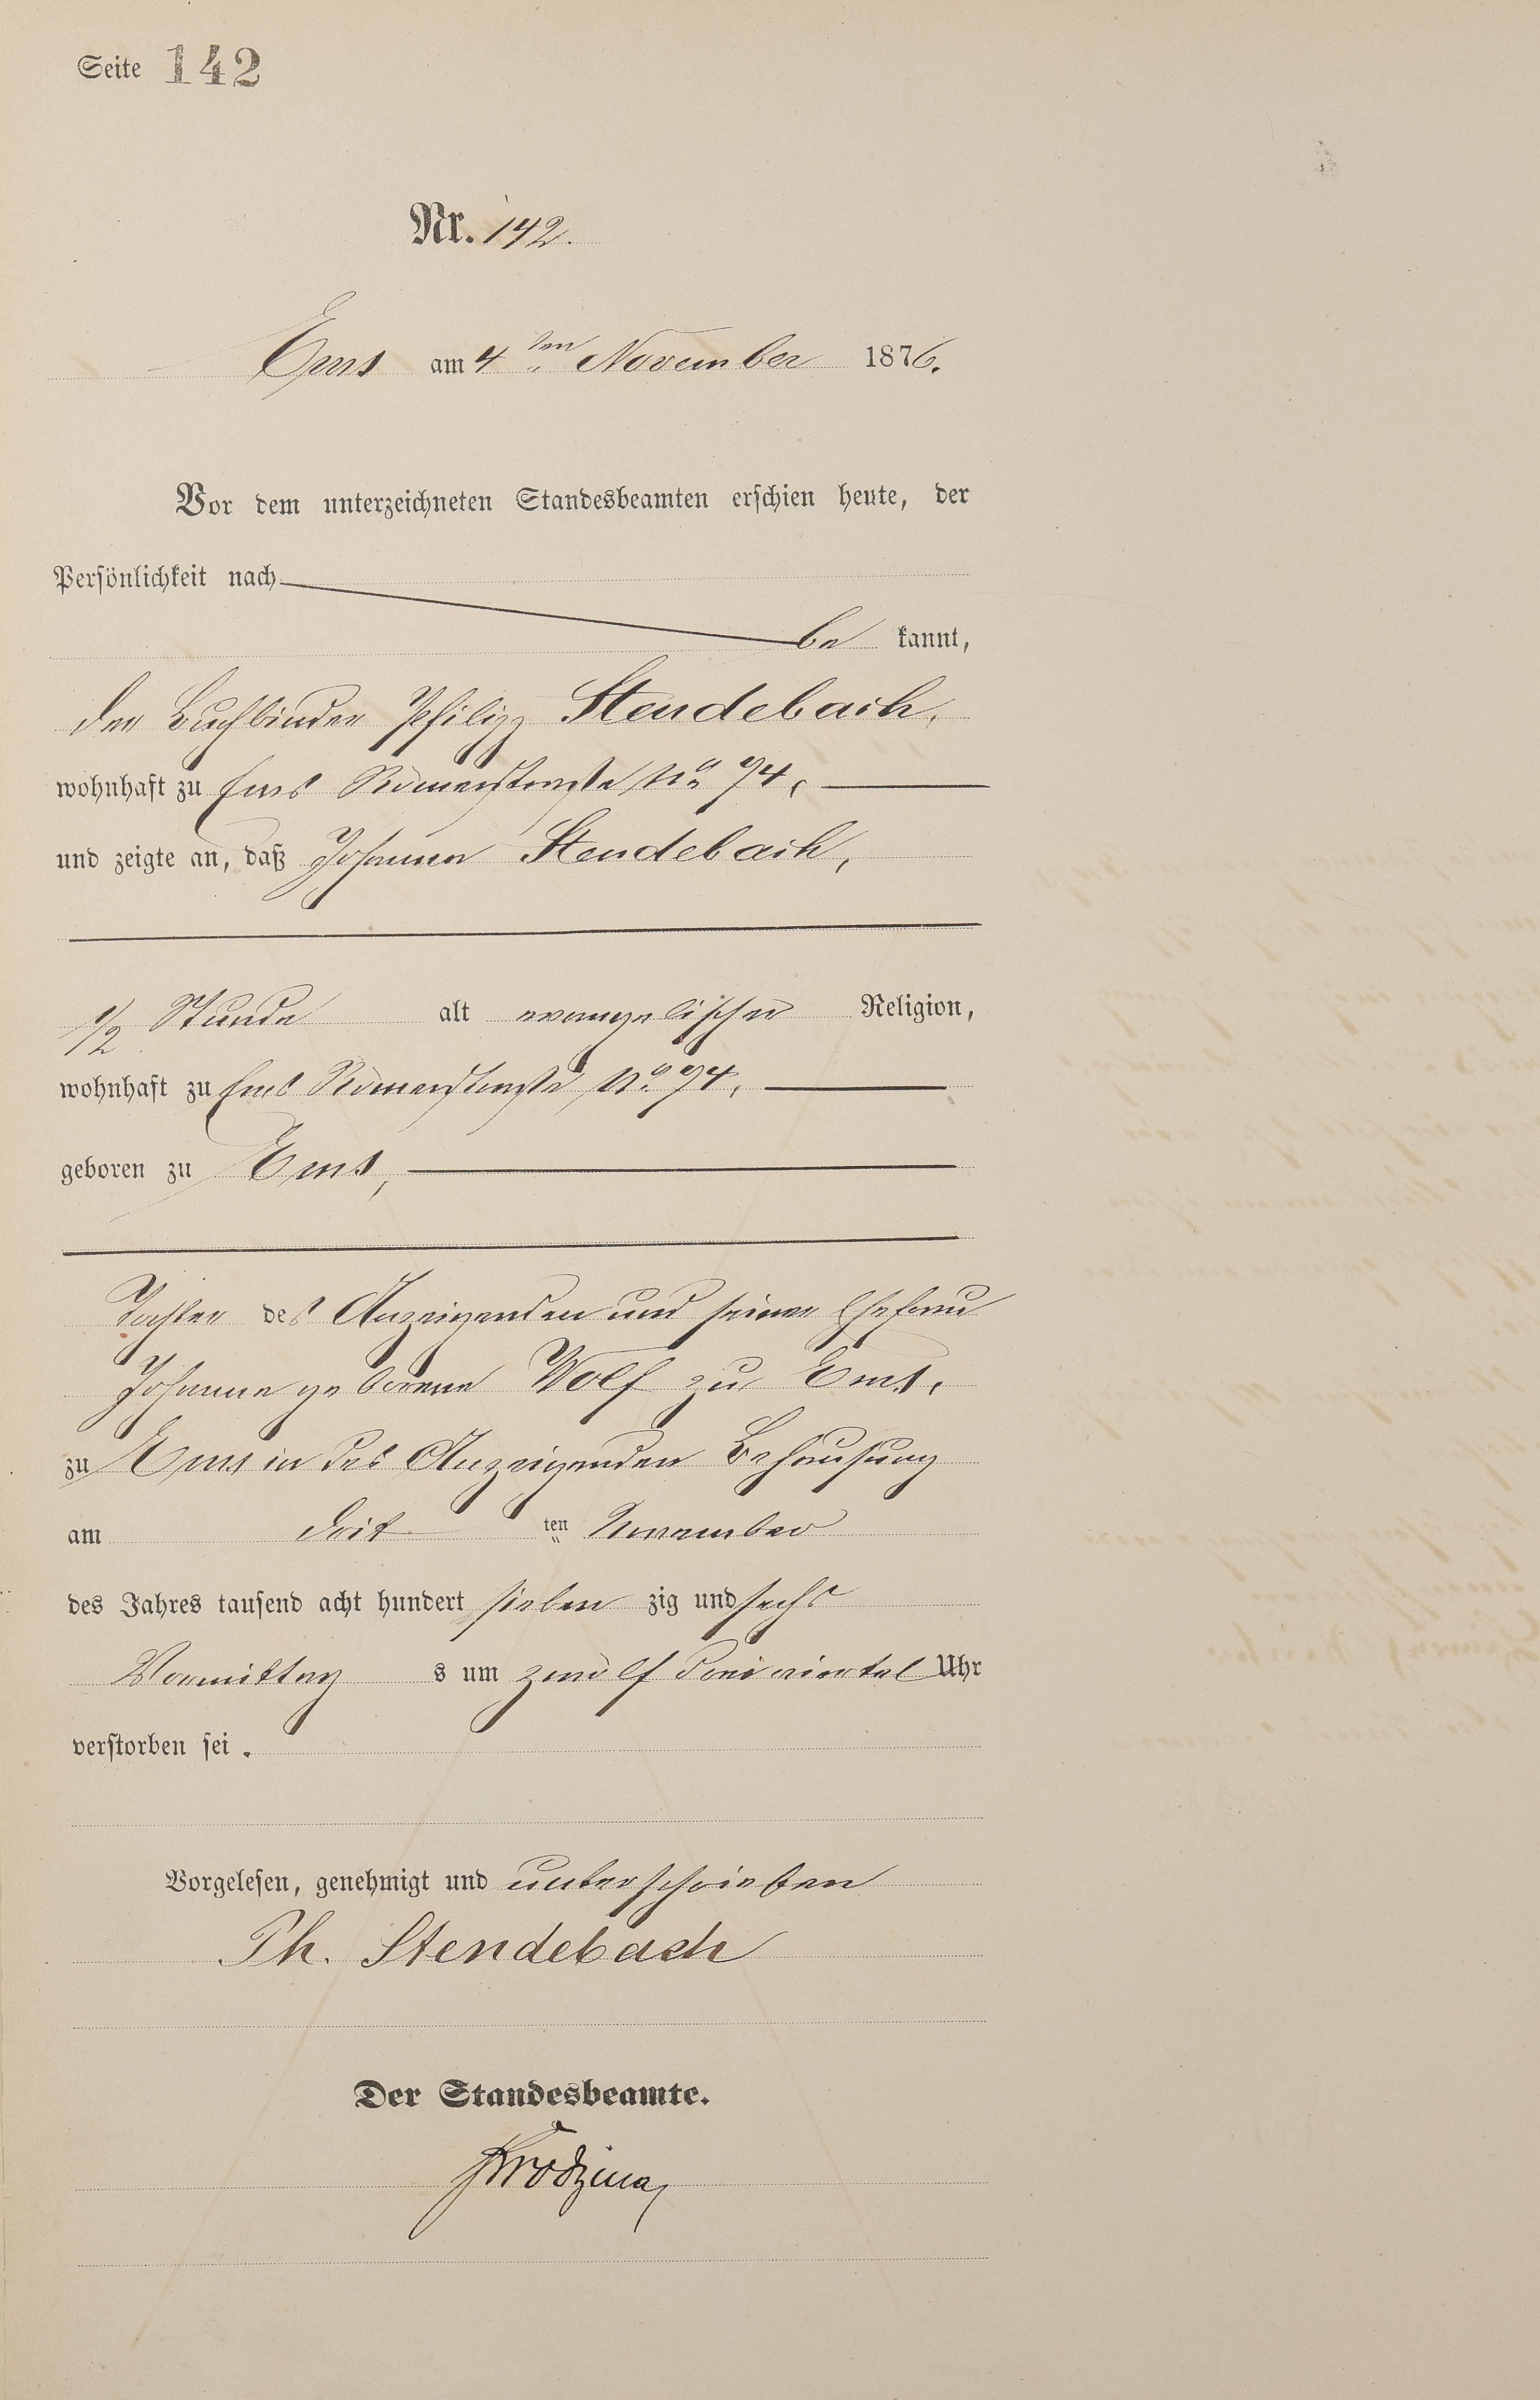 Seite 142
Nr. 142.
Ems am 4ten November 1876.
Vor dem unterzeichneten Standesbeamten erschien heute, der
Persönlichkeit nach
be kannt,
der Buchbinder Philipp Stendebach,
wohnhaft zu Ems Römerstraße No 74,
und zeigte an, daß Johanna Stendebach,
1/2 Stunde alt evangelischer Religion,
wohnhaft zu Ems Römerstraße No 74,
geboren zu Ems,
Tochter des Anzeigenden und seiner Ehefrau
Johanna geborene Wolf zu Ems.
zu Ems in des Anzeigenden Behausung
am drit ten November
des Jahres tausend acht hundert sieben zig und sechs
Vormittag s um zwölf dreiviertel Uhr
verstorben sei.
Vorgelesen, genehmigt und unterschrieben
Ph. Stendebach
Der Standesbeamte.